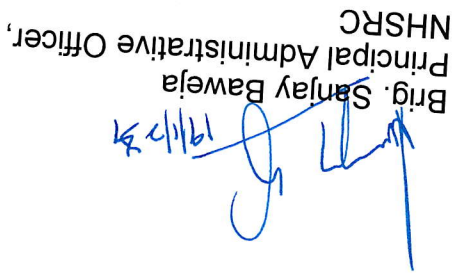 Brig. Sanjay Baweja
Principal Administrative Officer,
NHSRC